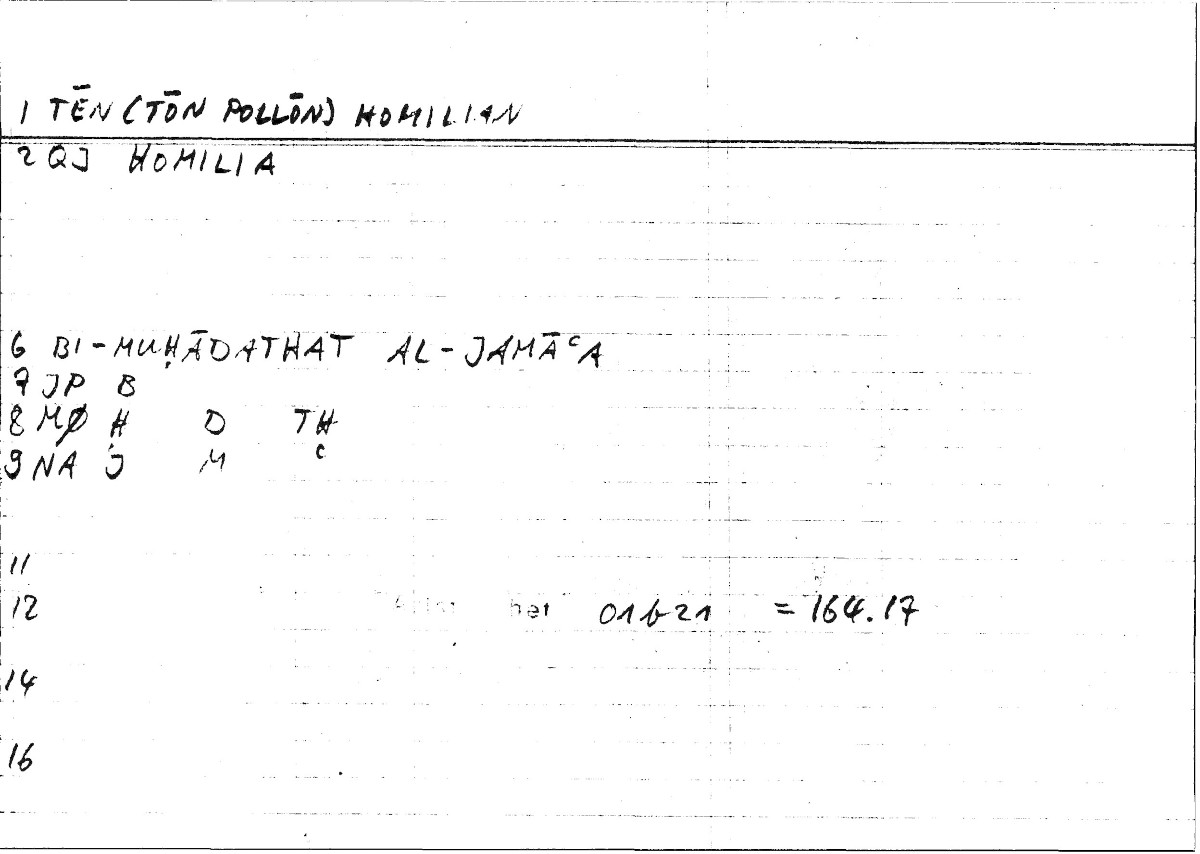 1 TĒN (TŌN POLLŌN) HOMILIAN
2 QJ HOMILIA
6 BI-MUḤĀDATHAT AL-JAMĀʿA
7 JP B
8 MØ Ḥ D TH
9 NA J M ʿ
11
12 het 01b21 = 164.17
14
16